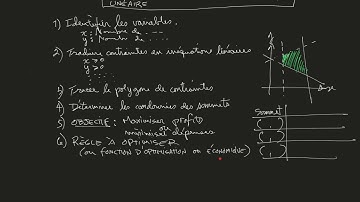 LINÉAIRE
1) Identifier les variables.
x: Nombre de ...
y: Nombre de ...
2) Traduire contraintes en inéquations linéaires
x ≥ 0
y ≥ 0
3) Tracer le polygone de contraintes
4) Déterminer les coordonnées des sommets
5) OBJECTIF : Maximiser profits
ou
minimiser dépenses
6) RÈGLE À OPTIMISER
(ou FONCTION D'OPTIMISATION ou ÉCONOMIQUE)
x
Sommet
( , )
( , )
( , )